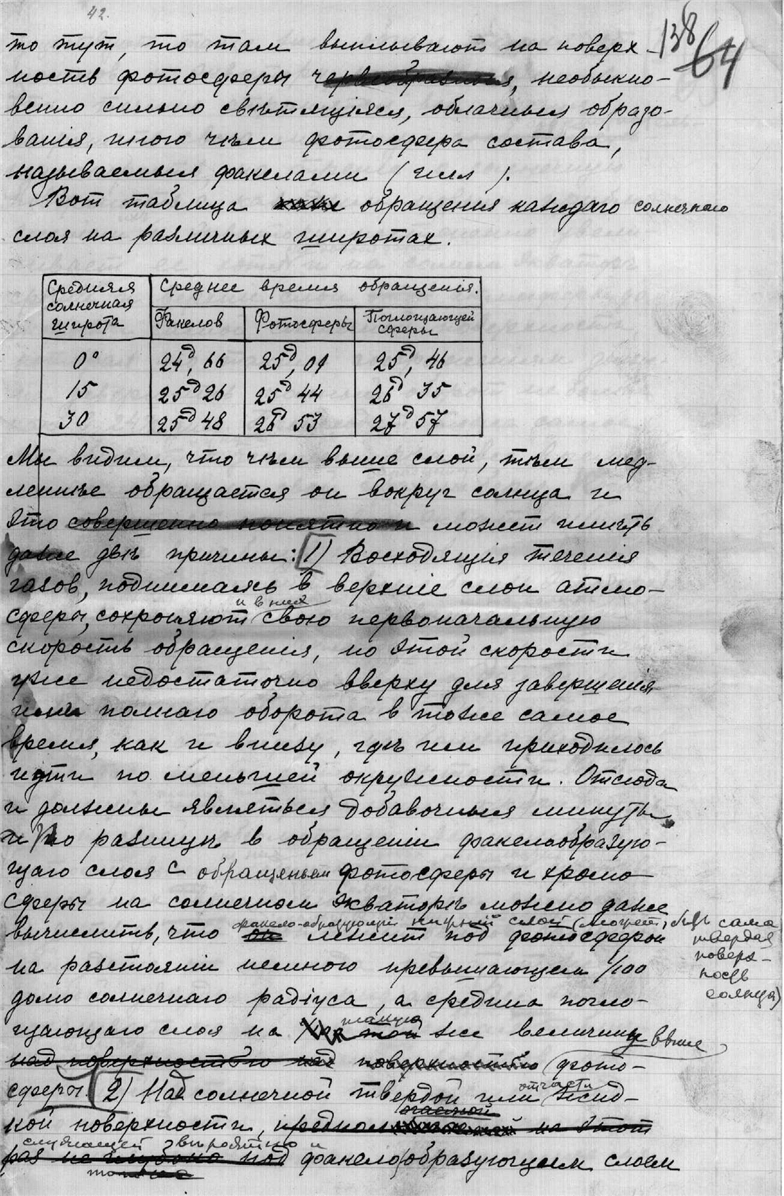 42.
138
64
то тут, то там выплывают на поверх-
ность фотосферы червеобразныя, необыкно-
венно сильно светящіяся, облачныя образо-
ванія, иного чѣм фотосфера состава,
называемыя факелами ( илл ).
Вот таблица обращения каждаго солнечнаго
слоя на различных широтах.
Средняя солнечная широта
Среднее время обращенія.
Факелов Фотосферы Поглощающей сферы
0° 24д,66 25д,09 25д,46
15 25д26 25д44 26д35
30 25д48 26д53 27д57
Мы видим, что чѣм выше слой, тѣм мед-
леннѣе обращается он вокруг солнца и
это совершенно понятно и может имѣть
даже двѣ причины: 1) Восходящія течения
газов, поднимаясь в верхніе слои атмо-
сферы, сохроняют и в них свою первоначальную
скорость обращения, но этой скорости
уже недостаточно вверху для завершения
ими полнаго оборота в тоже самое
время, как и внизу, гдѣ им приходилось
идти по меньшей окружности. Отсюда
и должны являться добавочныя минуты
и по разницѣ в обращеніи факелообразую-
щаго слоя с обращеньем фотосферы и хромо
сферы на солнечном экваторѣ можно даже
вычислить, что факело-образующий слой (может быть сама твердая поверх-ность солнца) лежит под фотосферой
на разстояніи немного превышающем 1/100
долю солнечнаго радіуса, а средина погло-
щающаго слоя на такую же величину выше
над поверхностью фото-
сферы 2) Над солнечной твердой или отчасти жид-
кой поверхности,
служащей вѣроятно и
факелообразующим слоем